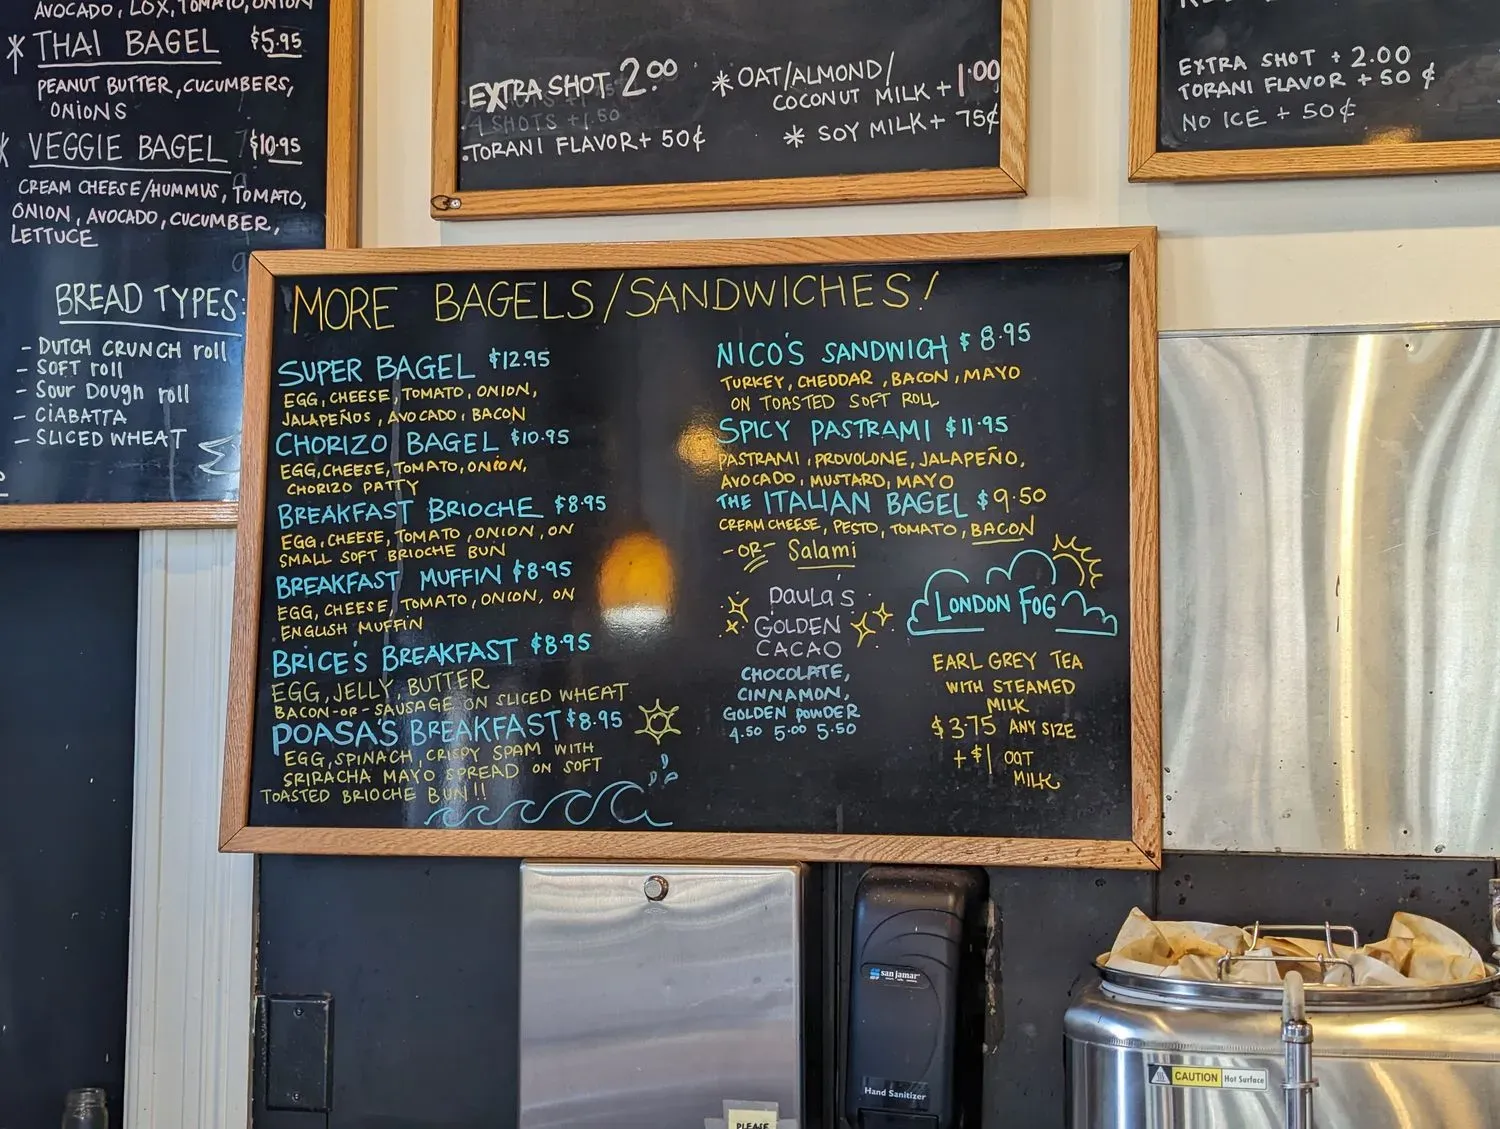 AVOCADO, LOX, TOMATO, ONION
* THAI BAGEL $5.95
PEANUT BUTTER, CUCUMBERS,
ONIONS
* VEGGIE BAGEL $10.95
CREAM CHEESE/HUMMUS, TOMATO,
ONION, AVOCADO, CUCUMBER,
LETTUCE
BREAD TYPES:
- DUTCH CRUNCH roll
- SOFT roll
- Sour Dough roll
- CIABATTA
- SLICED WHEAT
EXTRA SHOT 2.00
4 SHOTS +1.50
.TORANI FLAVOR + 50¢
* OAT/ALMOND/
COCONUT MILK + 1.00
* SOY MILK + 75¢
EXTRA SHOT + 2.00
TORANI FLAVOR + 50 ¢
NO ICE + 50¢
MORE BAGELS/SANDWICHES!
SUPER BAGEL $12.95
EGG, CHEESE, TOMATO, ONION,
JALAPEÑOS, AVOCADO, BACON
CHORIZO BAGEL $10.95
EGG, CHEESE, TOMATO, ONION,
CHORIZO PATTY
BREAKFAST BRIOCHE $8.95
EGG, CHEESE, TOMATO, ONION, ON
SMALL SOFT BRIOCHE BUN
BREAKFAST MUFFIN $8.95
EGG, CHEESE, TOMATO, ONION, ON
ENGLISH MUFFIN
BRICE'S BREAKFAST $8.95
EGG, JELLY, BUTTER
BACON-OR-SAUSAGE ON SLICED WHEAT
POASA'S BREAKFAST $8.95
EGG, SPINACH, CRISPY SPAM WITH
SRIRACHA MAYO SPREAD ON SOFT
TOASTED BRIOCHE BUN!!
NICO'S SANDWICH $8.95
TURKEY, CHEDDAR, BACON, MAYO
ON TOASTED SOFT ROLL
SPICY PASTRAMI $11.95
PASTRAMI, PROVOLONE, JALAPEÑO,
AVOCADO, MUSTARD, MAYO
THE ITALIAN BAGEL $9.50
CREAM CHEESE, PESTO, TOMATO, BACON
-OR- Salami
PAULA'S
GOLDEN
CACAO
CHOCOLATE,
CINNAMON,
GOLDEN POWDER
4.50 5.00 5.50
LONDON FOG
EARL GREY TEA
WITH STEAMED
MILK
$3.75 ANY SIZE
+ $1 OAT
MILK
san jamar
Hand Sanitizer
CAUTION Hot Surface
PLEASE